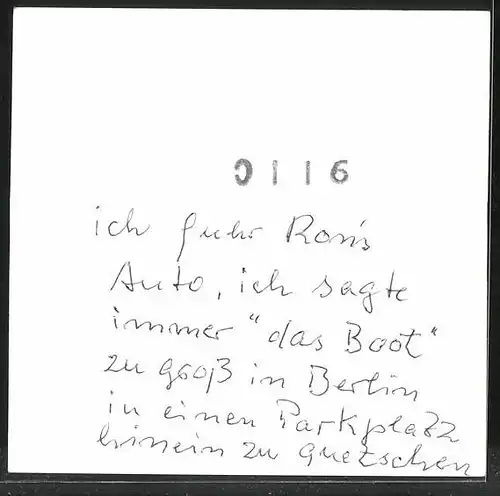 0116
ich fuhr Ron's
Auto, ich sagte
immer "das Boot"
zu groß in Berlin
in einen Parkplatz
hinein zu quetschen